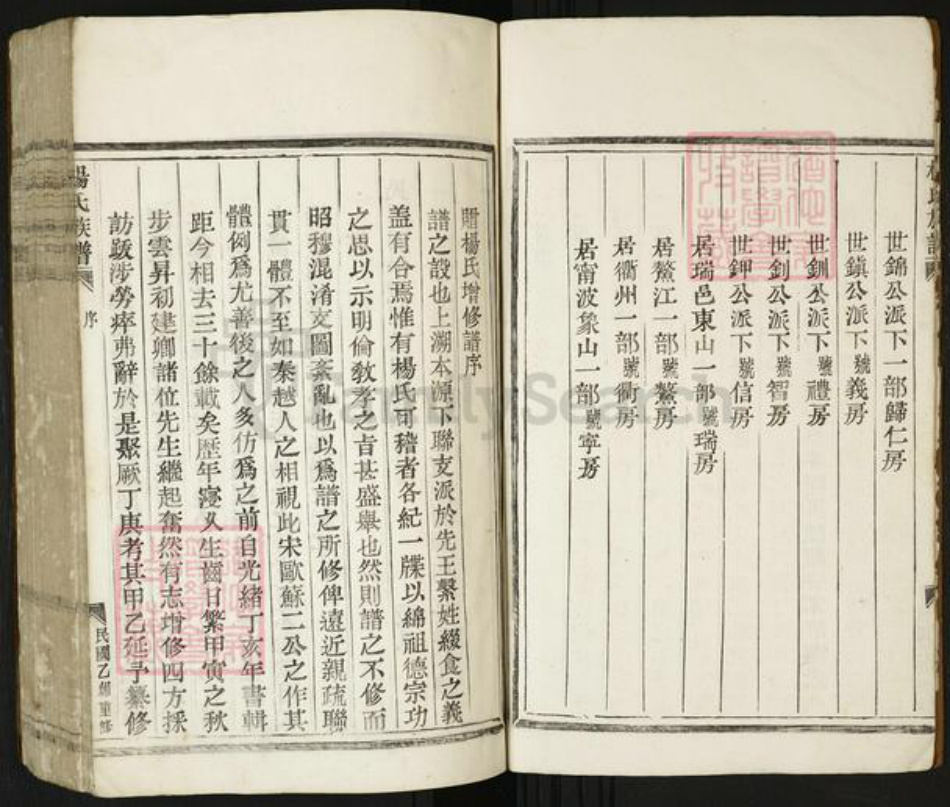 世錦公派下一部歸仁房
世鎮公派下號義房
世釧公派下號禮房
世釗公派下號智房
世鉀公派下號信房
居瑞邑東山一部號瑞房
居鰲江一部號鰲房
居衢州一部號衢房
居甯波象山一部號寧房
贈楊氏增修譜序
譜之設也上溯本源下聯支派於先王繫姓綴食之義
蓋有合焉惟有楊氏可稽者各紀一牒以綿祖德宗功
之思以示明倫敎孝之旨甚盛舉也然則譜之不修而
昭穆混淆支圖紊亂也以爲譜之所修俾遠近親疏聯
貫一體不至如秦越人之相視此宋歐蘇二公之作其
體例爲尤善後之人多仿爲之前自光緒丁亥年書輯
距今相去三十餘載矣歷年寖久生齒日繁甲寅之秋
步雲昇初建卿諸位先生繼起奮然有志增修四方採
訪跋涉勞瘁弗辭於是聚厥丁庚考其甲乙延予纂修
楊氏族譜
序
民國乙卯重修